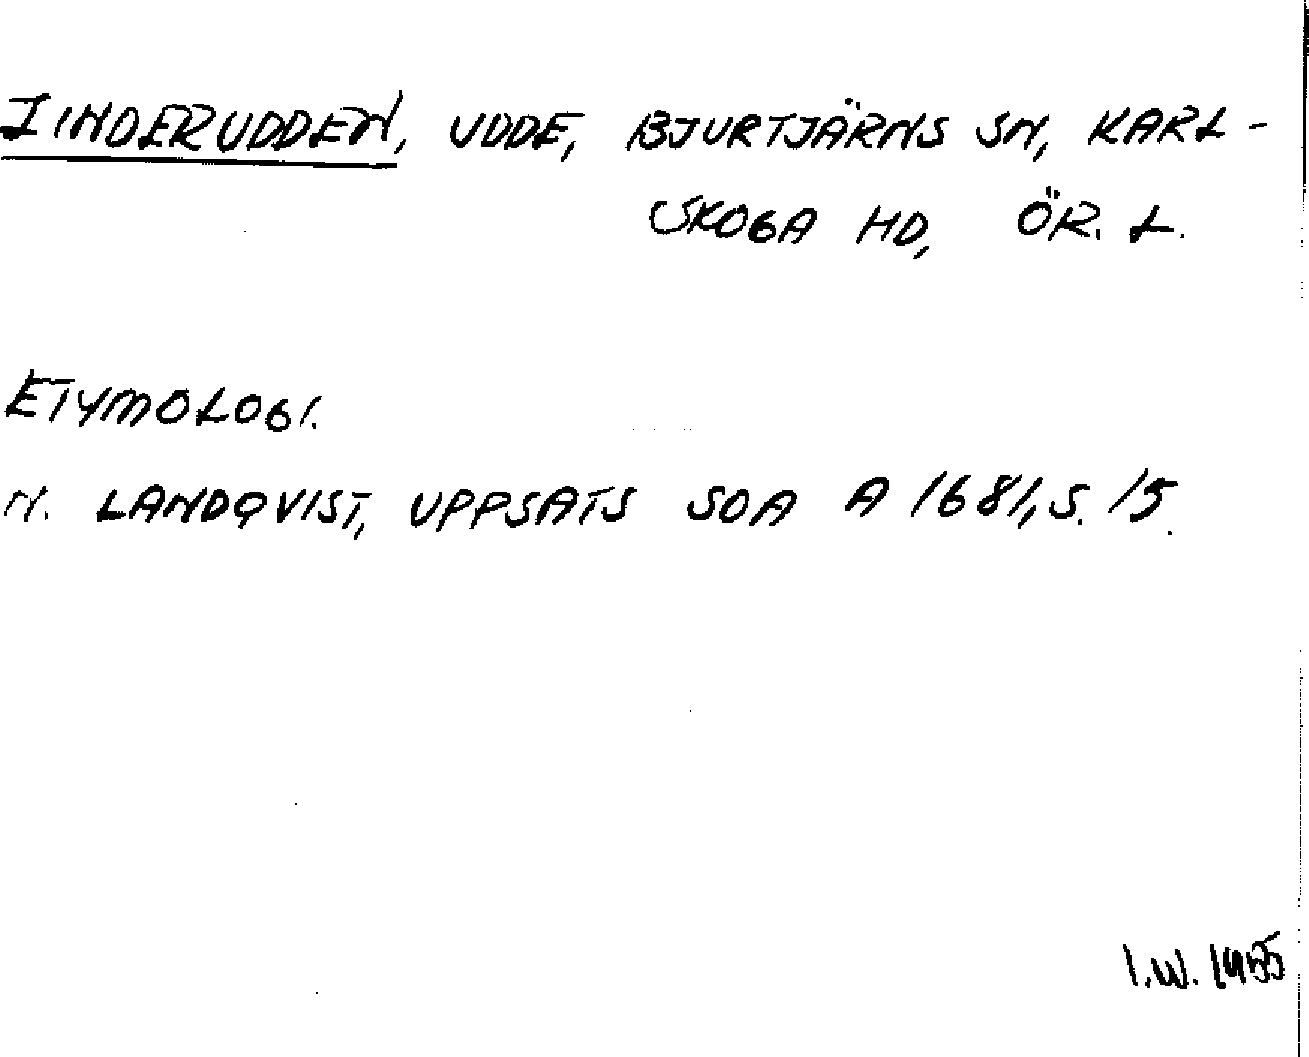 ZINDERUDDEN, UDDE, BJURTJÄRNS SN, KARL-
SKOGA HD, ÖR. L.
ETYMOLOGI.
N. LANDQVIST, UPPSATS SOA A 1681, S. 15.
I.W. 1955